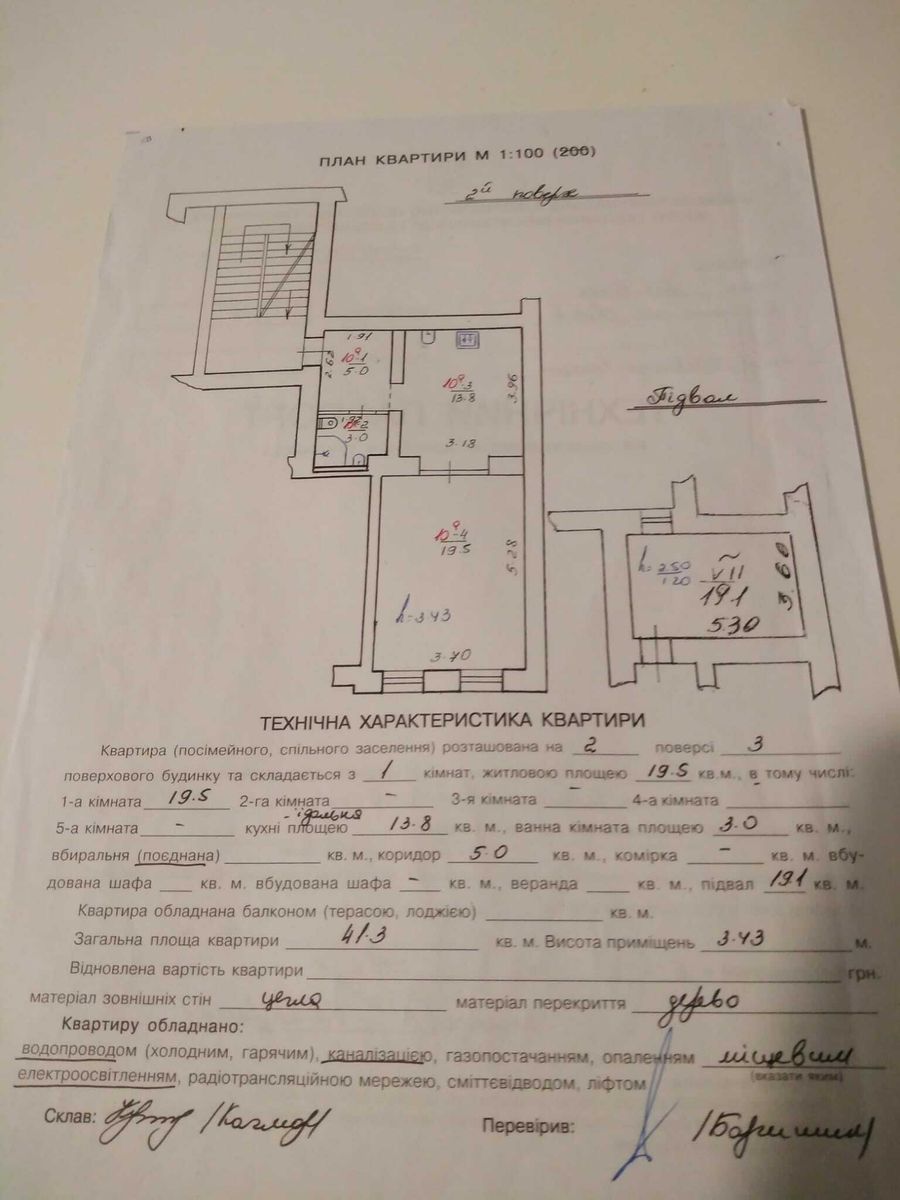 ПЛАН КВАРТИРИ М 1:100 (200)
2й поверх
1.91
2.62
10а-1
5.0
10а-3
13.8
3.96
3.18
10а-2
3.0
Підвал
10а-4
19.5
5.28
h=3.43
3.70
h=2.50
1.20
VII
19.1
3.60
5.30
ТЕХНІЧНА ХАРАКТЕРИСТИКА КВАРТИРИ
Квартира (посімейного, спільного заселення) розташована на 2 поверсі 3
поверхового будинку та складається з 1 кімнат, житловою площею 19.5 кв.м., в тому числі:
1-а кімната 19.5 2-га кімната - 3-я кімната - 4-а кімната
5-а кімната - кухні-їдальня площею 13.8 кв. м., ванна кімната площею 3.0 кв. м.,
вбиральня (поєднана) кв. м., коридор 5.0 кв. м., комірка - кв. м. вбу-
дована шафа кв. м. вбудована шафа - кв. м., веранда кв. м., підвал 19.1 кв. м.
Квартира обладнана балконом (терасою, лоджією) кв. м.
Загальна площа квартири 41.3 кв. м. Висота приміщень 3.43 м.
Відновлена вартість квартири грн.
матеріал зовнішніх стін цегла матеріал перекриття дерево
Квартиру обладнано:
водопроводом (холодним, гарячим), каналізацією, газопостачанням, опаленням місцевим
(вказати яким)
електроосвітленням, радіотрансляційною мережею, сміттєвідводом, ліфтом
Склав: Перевірив: